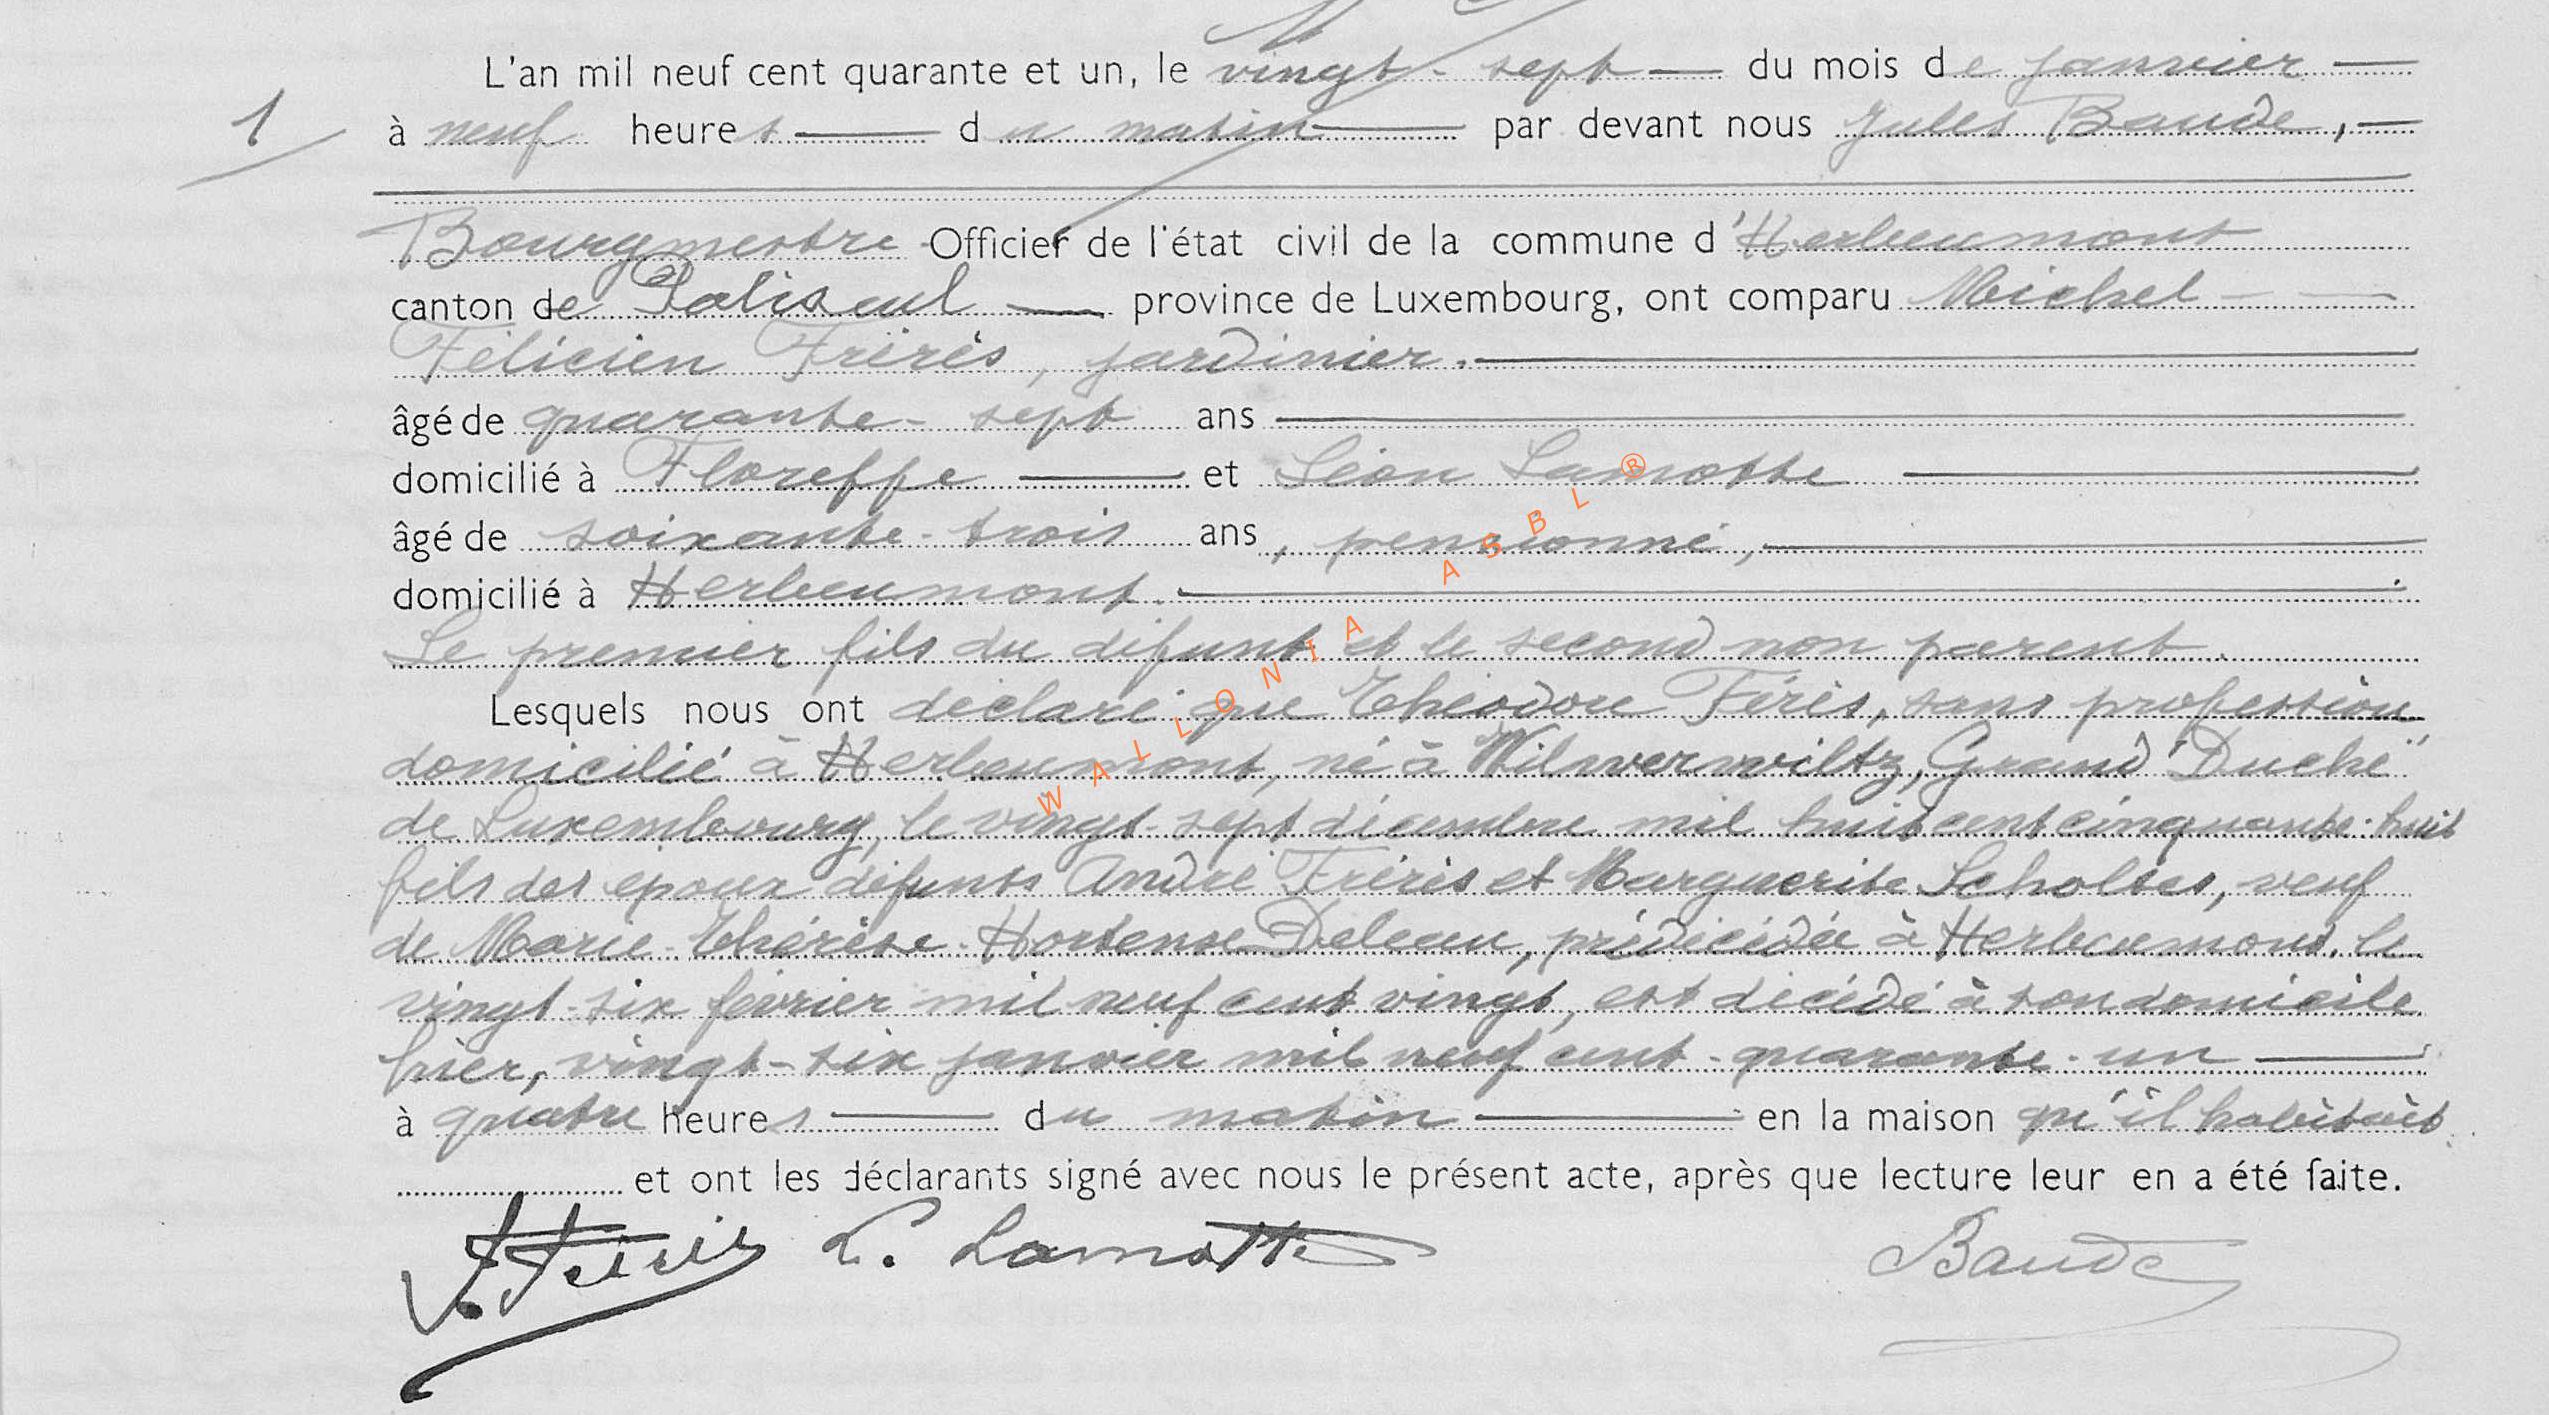 L'an mil neuf cent quarante et un, le vingt-sept du mois de janvier
1
à neuf heures du matin par devant nous Jules Baude,
Bourgmestre Officier de l'état civil de la commune d'Herbeumont
canton de Paliseul province de Luxembourg, ont comparu Michel
Félicien Frérès, jardinier.
âgé de quarante-sept ans
domicilié à Floreffe et Léon Lamotte
âgé de soixante-trois ans, pensionné,
domicilié à Herbeumont.
Le premier fils du défunt et le second non parent.
Lesquels nous ont déclaré que Théodore Férès, sans profession,
domicilié à Herbeumont, né à Wilwerwiltz, Grand Duché
de Luxembourg, le vingt-sept décembre mil huit cent cinquante-huit
fils des époux défunts André Frérès et Marguerite Scholtes, veuf
de Marie-Thérèse-Hortense Deleau, prédécédée à Herbeumont, le
vingt-six février mil neuf cent vingt, est décédé à son domicile
hier, vingt-six janvier mil neuf cent-quarante-un
à quatre heures du matin en la maison qu'il habitait
et ont les déclarants signé avec nous le présent acte, après que lecture leur en a été faite.
L. Lamotte Baude
WALLONIA ASBL ®